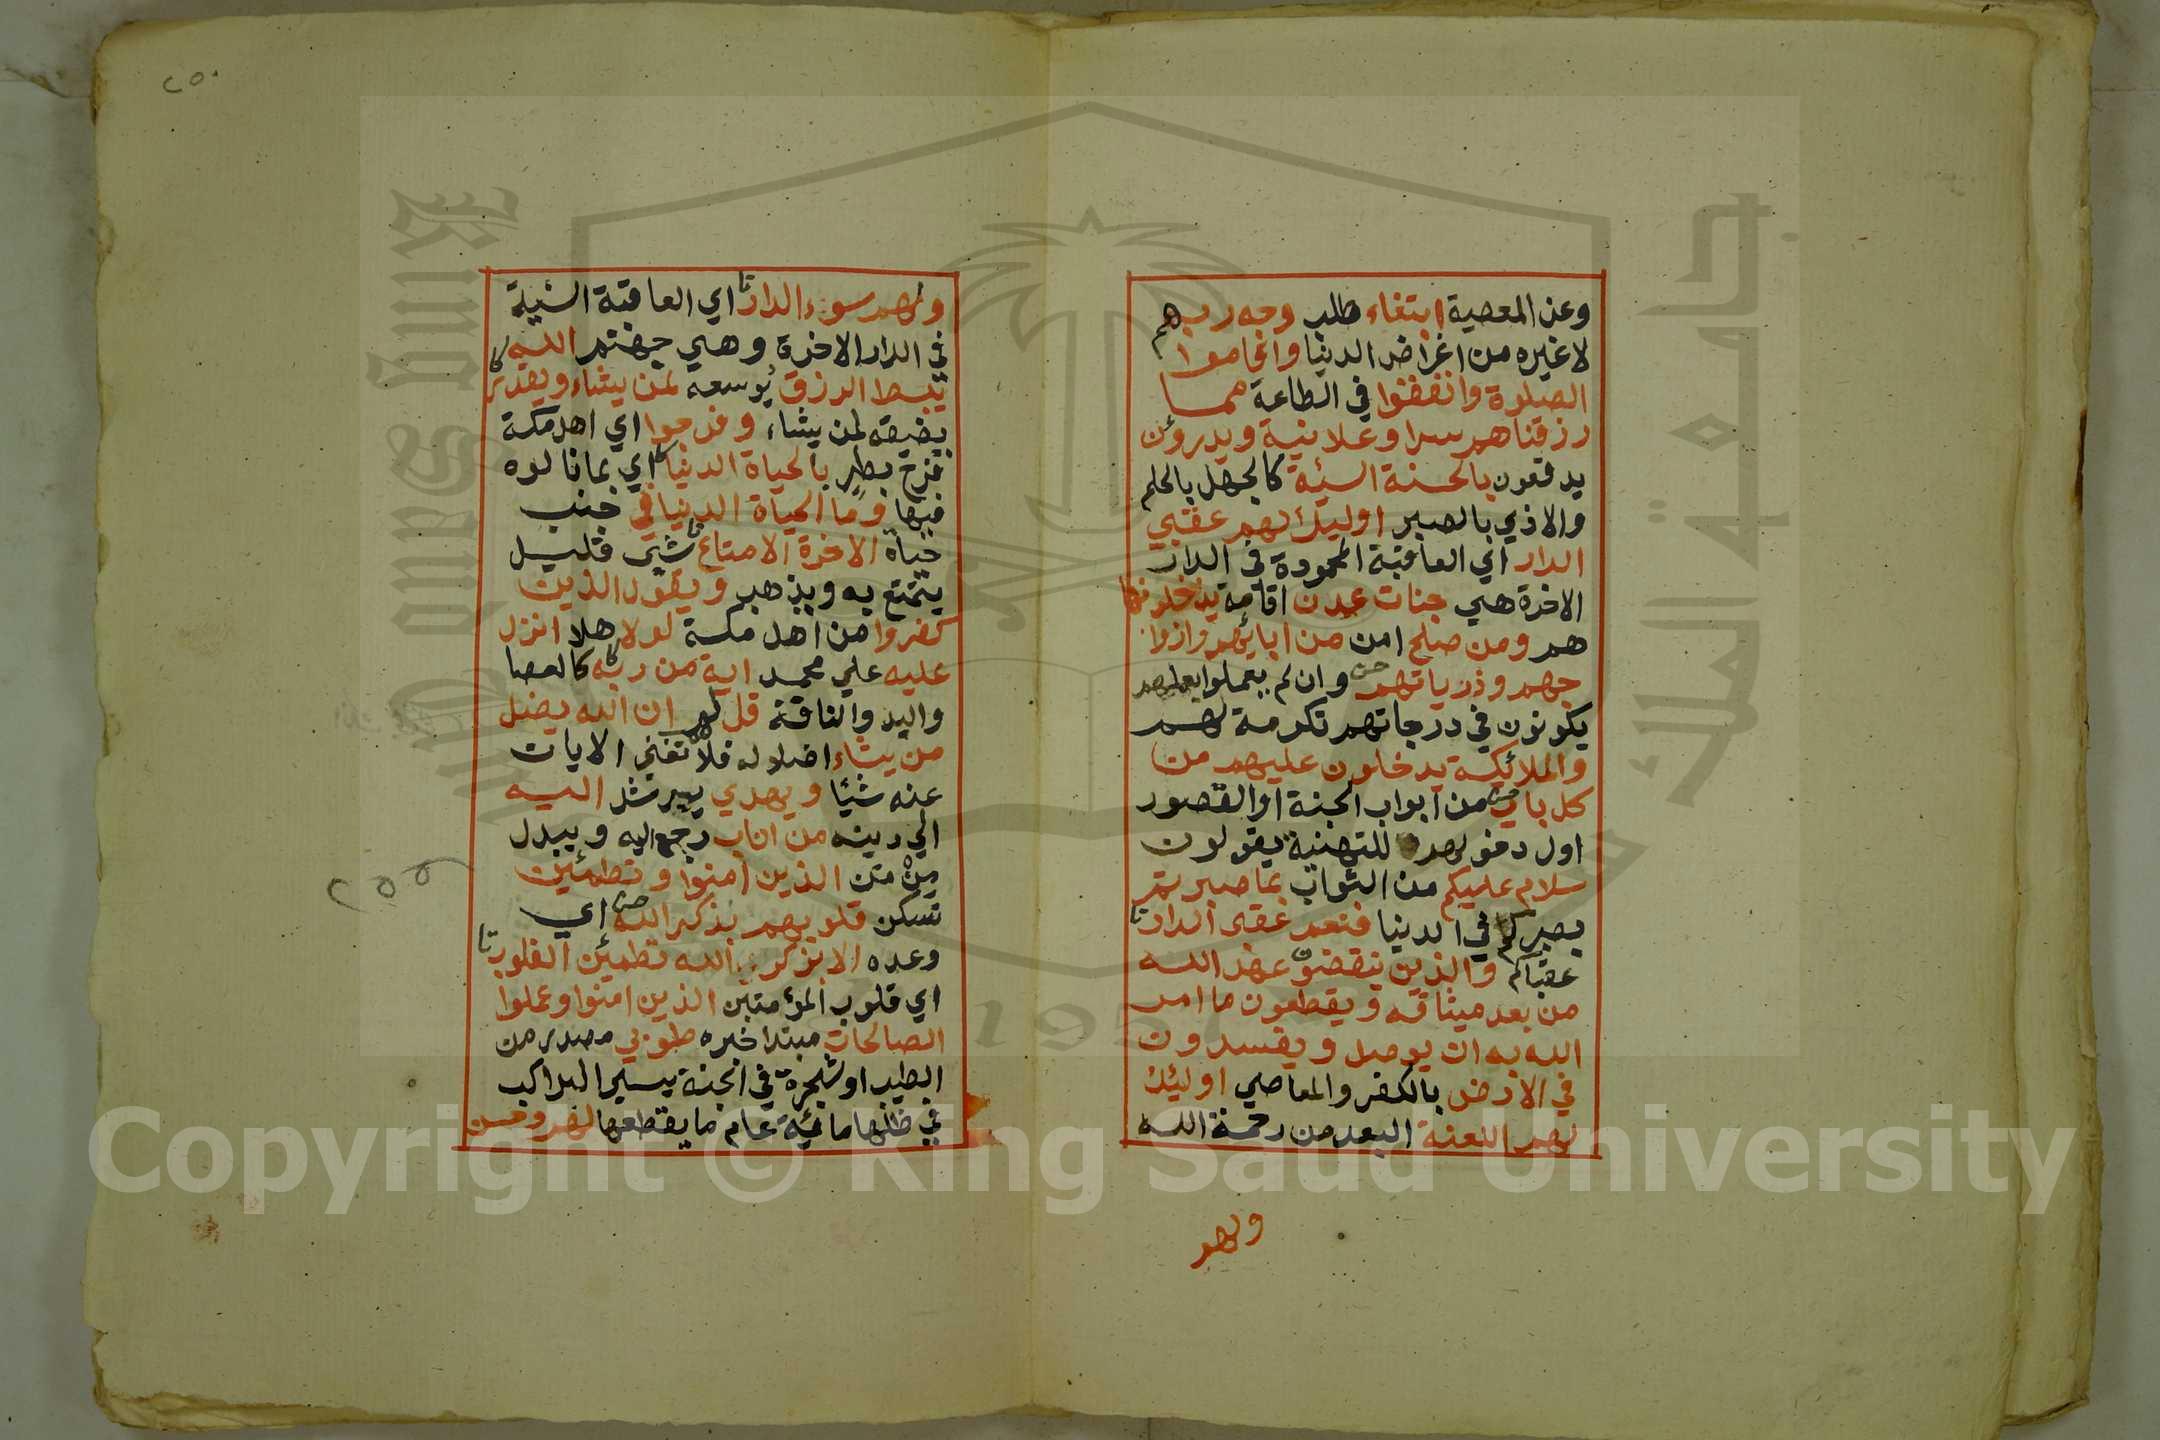 وعن المعصية ابتغاء طلب وجه ربهم
لا غيره من اغراض الدنيا واقاموا
الصلوة وانفقوا في الطاعة مما
رزقناهم سرا وعلانية ويدرؤن
يدفعون بالحسنة السيئة كالجهل بالحلم
والاذي بالصبر اوليك لهم عقبي
الدار اي العاقبة المحمودة في الدار
الاخرة هي جنات عدن اقامة يدخلونها
هم ومن صلح امن من ابايهم وازوا
جهم وذرياتهم وان لم يعملوا بعملهم
يكونون في درجاتهم تكرمة لهم
والملائكة يدخلون عليهم من
كل باب من ابواب الجنة او القصور
اول دخولهم للتهنية يقولون
سلام عليكم من الثواب بما صبرتم
بصبركم في الدنيا فنعم عقبي الدار
عقباكم والذين ينقضون عهد الله
من بعد ميثاقه ويقطعون ما امر
الله به ان يوصل ويفسدون
في الارض بالكفر والمعاصي اوليئك
لهم اللعنة البعد من رحمة الله
ولهم
٢٥٠
ولهم سوء الدار اي العاقبة السيئة
في الدار الاخرة وهي جهنم الله
يبسط الرزق يوسعه لمن يشاء ويقدر
يضيقه لمن يشاء وفرحوا اي اهل مكة
فرح بطر بالحياة الدنيا اي بما نالوه
فيها وما الحياة الدنيا في جنب
حياة الاخرة الا متاع شئ قليل
يتمتع به ويذهب ويقول الذين
كفروا من اهل مكة لولا هلا انزل
عليه علي محمد اية من ربه كالعصا
واليد والناقة قل لهم ان الله يضل
من يشاء اضلاله فلا تغني الايات
عنه شيئا ويهدي يرشد اليه
الي دينه من اناب رجع اليه ويبدل
من من الذين امنوا وتطمئن
تسكن قلوبهم بذكر الله اي
وعده الا بذكر الله تطمئن القلوب
اي قلوب المؤمنين الذين امنوا وعملوا
الصالحات مبتدا خبره طوبي مصدر من
الطيب او شجرة في الجنة يسير الراكب
في ظلها مائة عام ما يقطعها لهم وحسن
٢٥٥
King Saud University
جامعة الملك سعود
1957
Copyright © King Saud University